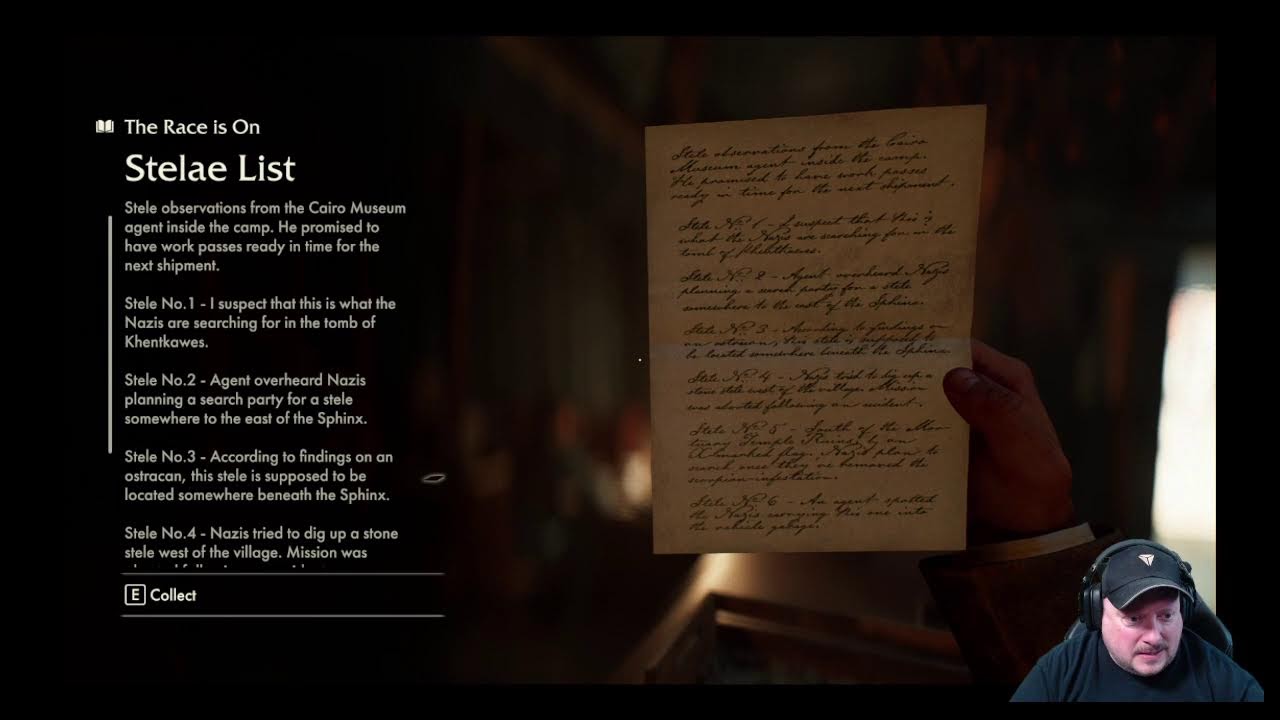 The Race is On
Stelae List
Stele observations from the Cairo Museum
agent inside the camp. He promised to
have work passes ready in time for the
next shipment.
Stele No.1 - I suspect that this is what the
Nazis are searching for in the tomb of
Khentkawes.
Stele No.2 - Agent overheard Nazis
planning a search party for a stele
somewhere to the east of the Sphinx.
Stele No.3 - According to findings on an
ostracan, this stele is supposed to be
located somewhere beneath the Sphinx.
Stele No.4 - Nazis tried to dig up a stone
stele west of the village. Mission was
E Collect
Stele observations from the Cairo
Museum agent inside the camp.
He promised to have work passes
ready in time for the next shipment.
Stele No. 1 - I suspect that this is
what the Nazis are searching for in the
tomb of Khentkawes.
Stele No. 2 - Agent overheard Nazis
planning a search party for a stele
somewhere to the east of the Sphinx.
Stele No. 3 - According to findings on
an ostracan, this stele is supposed to
be located somewhere beneath the Sphinx.
Stele No. 4 - Nazis tried to dig up a
stone stele west of the village. Mission
was aborted following an accident.
Stele No. 5 - South of the Mor-
tuary Temple Ruins, by an
X-marked flag. Nazis plan to
search once they've removed the
scorpion-infestation.
Stele No. 6 - An agent spotted
the Nazis carrying this one into
the vehicle garage.